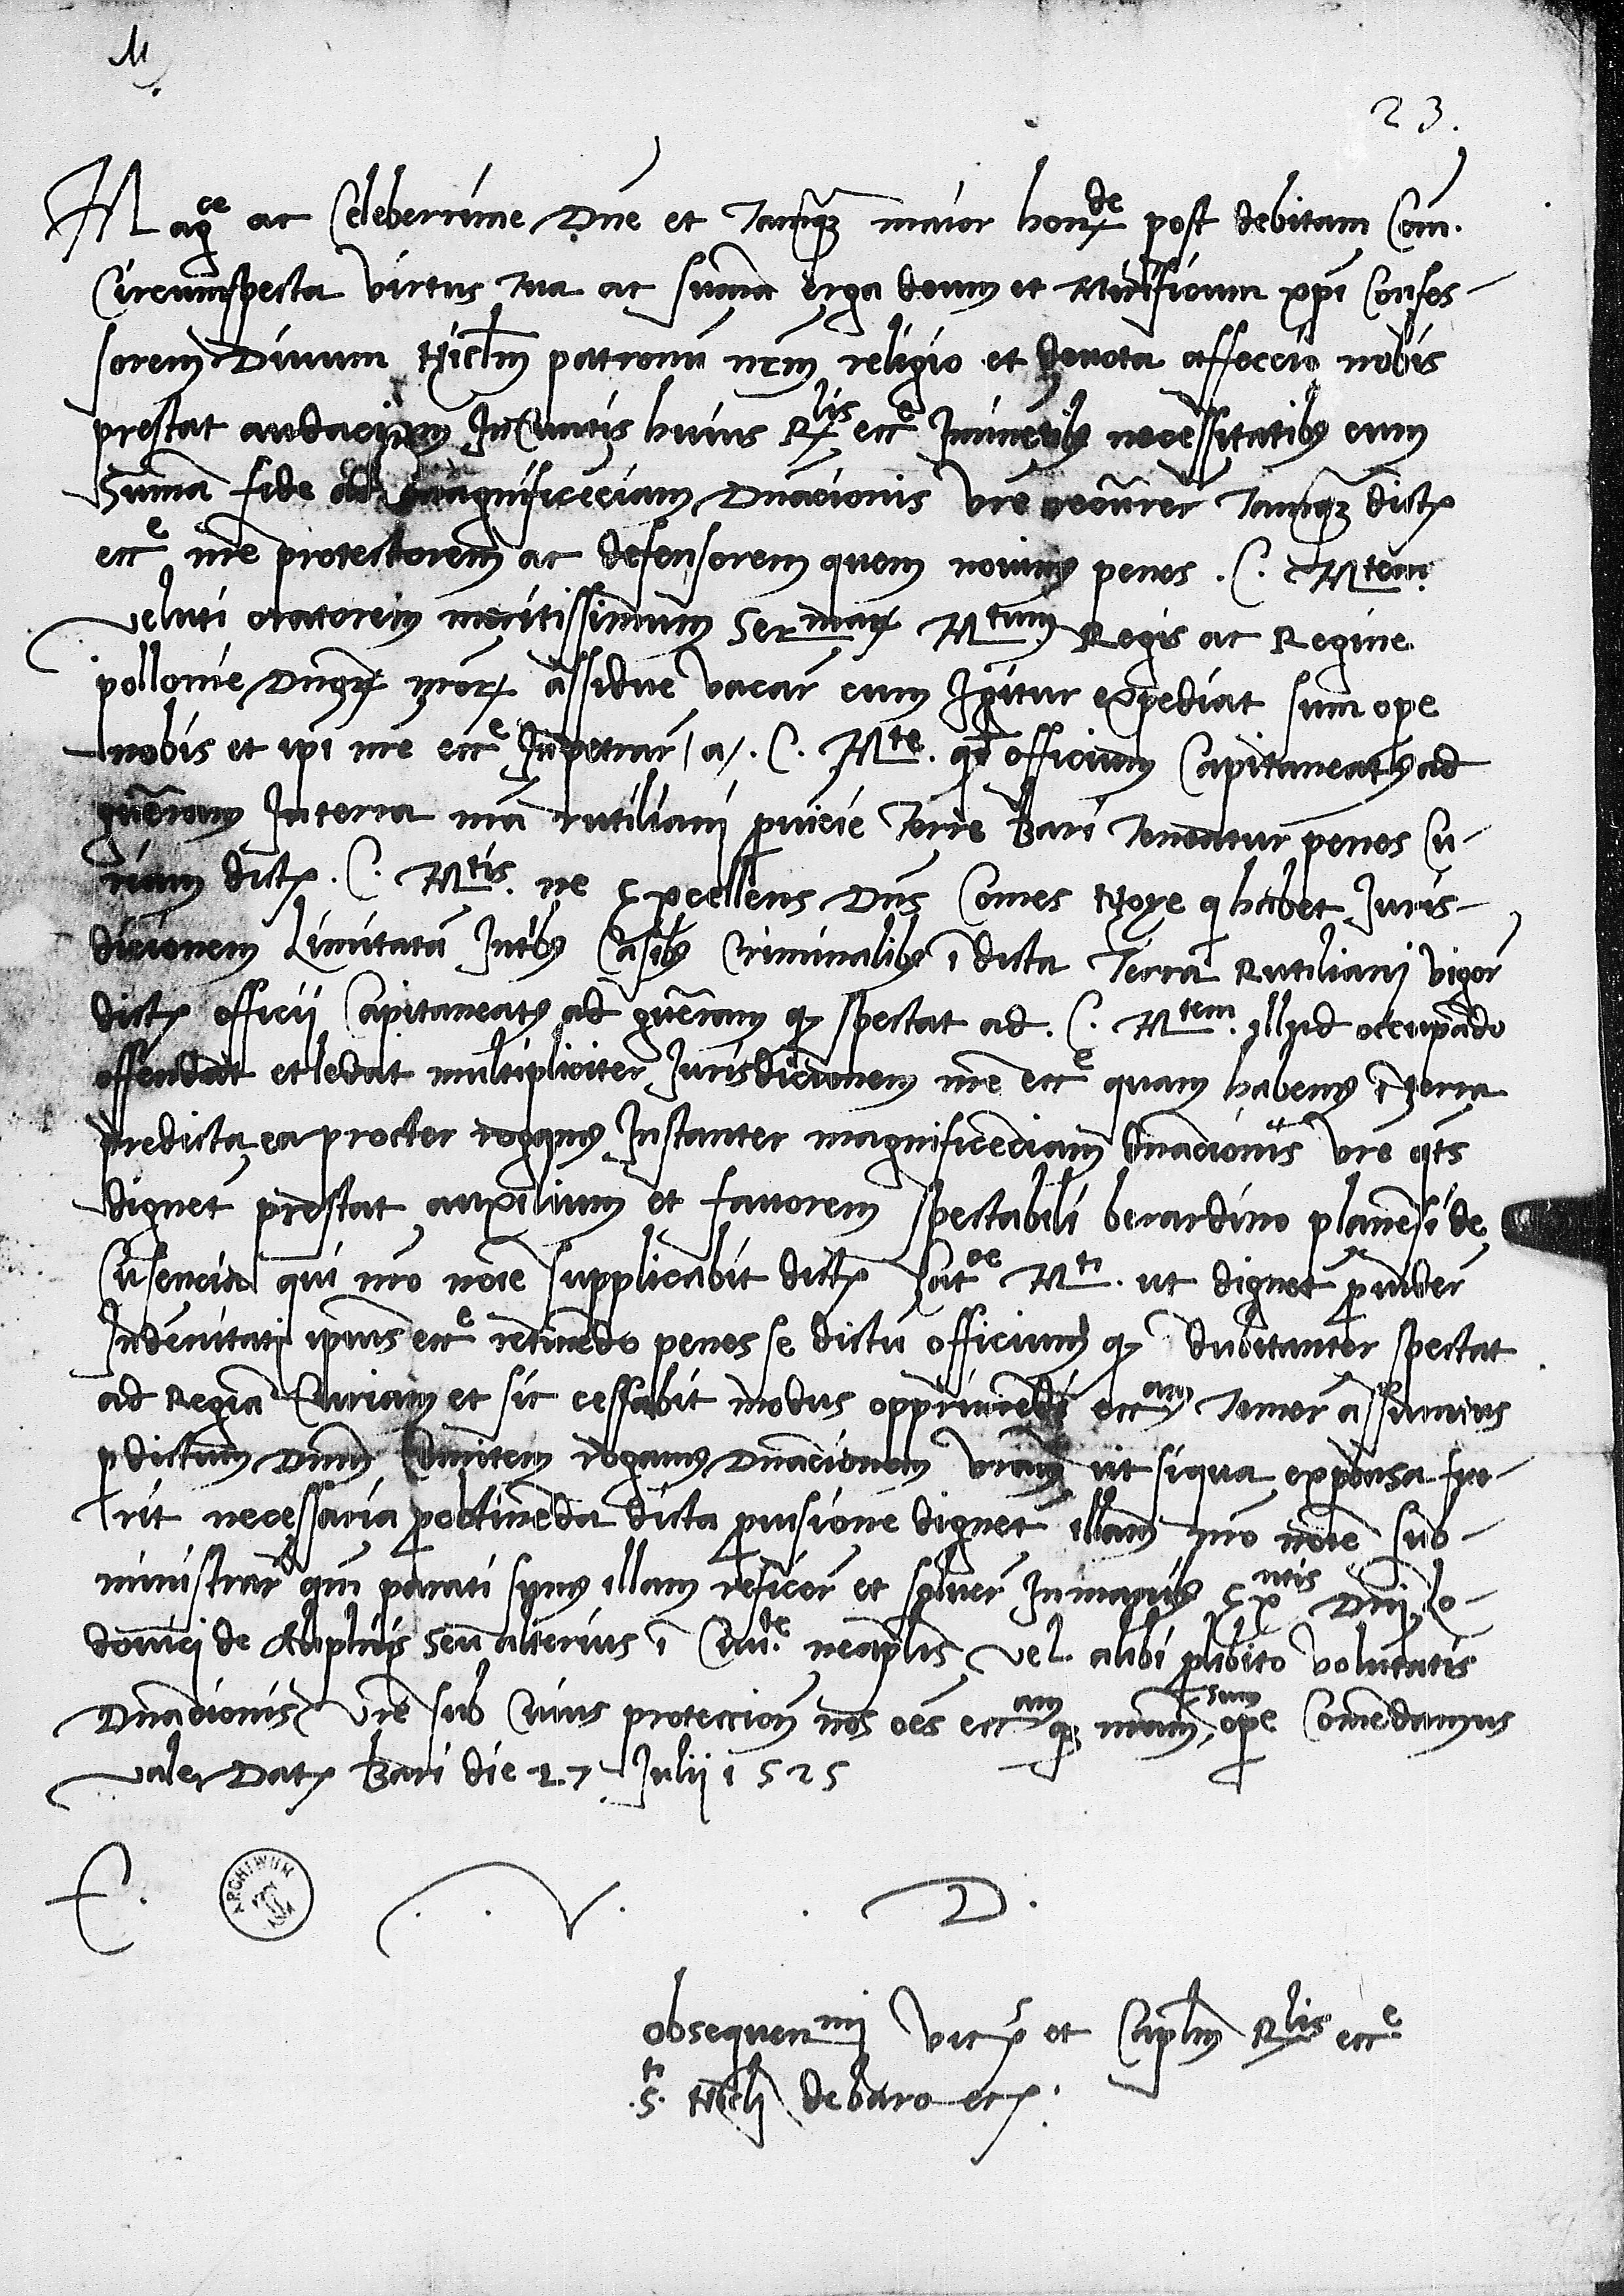 M
23.
Mag^ce ac Celeberrime Dne et tamq3 maior hon^de post debitam Com.
Circumspecta virtus tua ac suma erga deum et Mirificum xpi Confes-
sorem Divum Niclm patronu nrm religio et devota affeccio nobis
prestat audaciam In Cuntis huius R^lis ecc^e Inumerib9 necessitatib9 cum
Suma fide ad magnificenciam Dnacionis vre recurrer tamq3 dict
ecc^e nre protectorem ac defensorem quem novim9 penes .C. M^tem.
veluti oratorem meritissimum Ser^mar M^tum Regis ac Regine
pollonie Dnor nror assidue vacar cum Igitur expediat sum ope
nobis et ipi nre ecc^e Inpetrar / a /. C. M^te. qd officium Capitaneat9 ad
guerram In terra nra rutiliani pvicie Terre Bari teneatur penes Cu-
riam dict. C. M^tis. ne Excellens Dns Comes Noye q habet Juris-
dicionem Limitata In trib9 Casib9 Criminalib9 i dicta Terra Rutiliani vigor
dict officii Capitaneat9 ad guerram q spectat ad. C. M^tem. illud occupado
offendat et ledat multipliciter Jurisdicionem nre ecc^e quam habem9 i terra
predicta, ea propter rogam9 Instanter magnificenciam Dnacionis vre qts
dignet prestar auxilium et favorem spectabili berardino planensi de
Cusencia qui nro noie supplicabit dict Cat^ce M^ti. ut dignet pvider
Indenitati ipius ecc^e retinedo penes se dictu officium q dubitanter spectat
ad Regia Curiam et sic cessabit modus opprimedi ecc^am temer assumius
p dictum Dnm Comitem rogam9 Dnacionem vram ut siqua expensa fue-
rit necessaria p obtineda dicta pvisione dignet illam nro noie sub-
ministrar qm parati sum9 illam reficer et solver In manib9 Ex^ntis Dni lo-
dovici de Aliphiis seu alterius i Civi^te neaplis vel alibi p libito voluntatis
Dnacionis vre sub Cuius proteccion nos oes ecc^am q nram sum ope Comedamus
vale, Dat Bari die 27 Julii 1525
E. V. D.
ARCHIWUM
obsequen^mi vic^s et Caplm R^lis ecc^e
.S^ti. Nicli de baro etc.